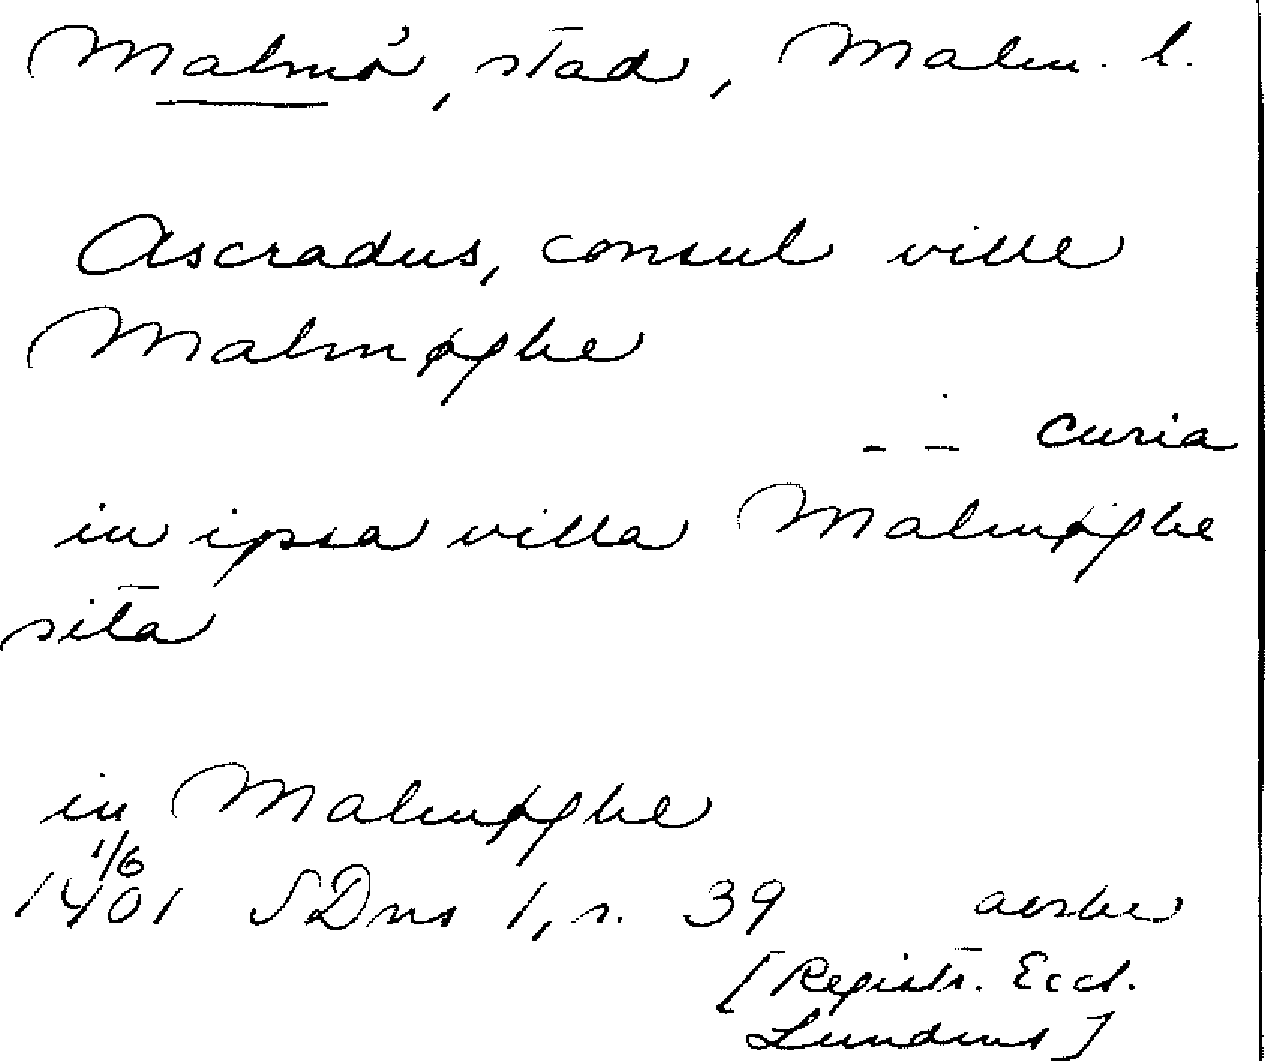 Malmö, stad, Malm. l.
Ascradus, consul ville
Malmøghe
- - curia
in ipsa villa Malmøghe
sita
in Malmøghe
1/6
1401 SDns 1, s. 39 avskr
[Registr. Eccl.
Lundens]